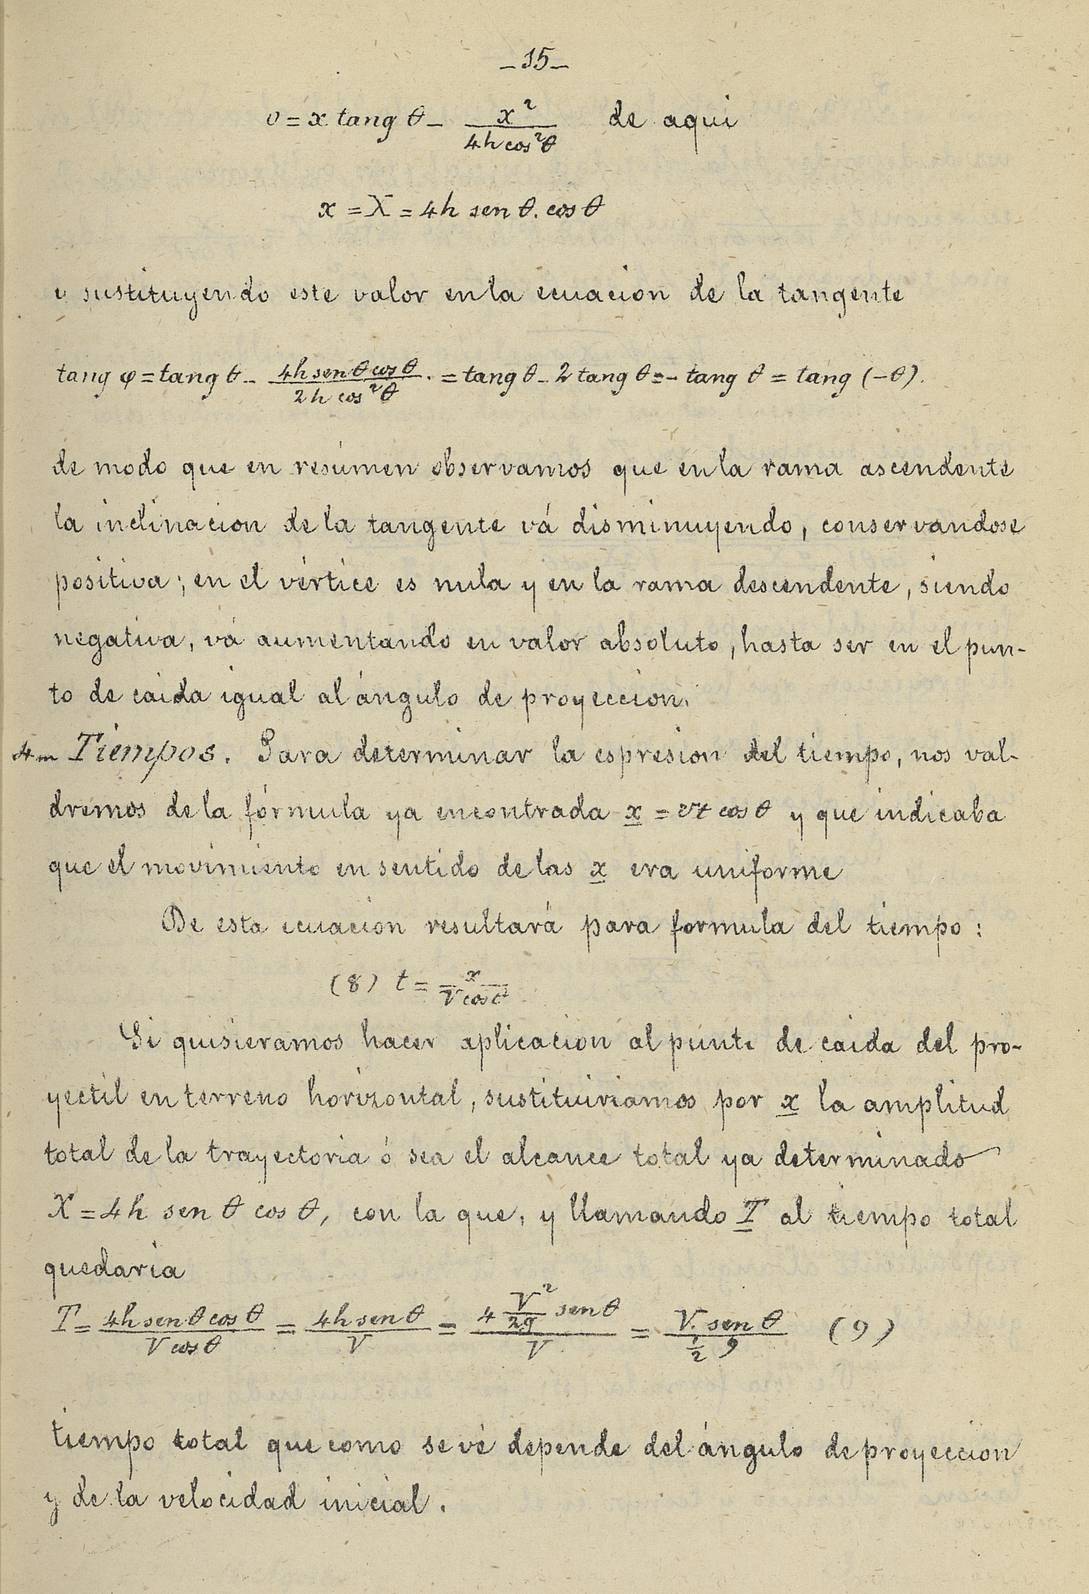 _15_
0 = x tang θ - x² / 4h cos² θ de aqui
x = X = 4h sen θ. cos θ
i sustituyendo este valor en la ecuacion de la tangente
tang φ = tang θ - 4h sen θ cos θ / 2h cos² θ . = tang θ - 2 tang θ = - tang θ = tang (-θ).
de modo que en resúmen observamos que en la rama ascendente
la inclinacion de la tangente vá disminuyendo, conservandose
positiva; en el vértice es nula y en la rama descendente, siendo
negativa, vá aumentando en valor absoluto, hasta ser en el pun-
to de caida igual al ángulo de proyeccion.
Tiempos. Para determinar la espresion del tiempo, nos val-
dremos de la fórmula ya encontrada x = vt cos θ y que indicaba
que el movimiento en sentido de las x era uniforme
De esta ecuacion resultará para formula del tiempo:
(8) t = x / V cos θ
Si quisieramos hacer aplicacion al punto de caida del pro-
yectil en terreno horizontal, sustituiriamos por x la amplitud
total de la trayectoria ó sea el alcance total ya determinado
X = 4h sen θ cos θ, con la que, y llamando T al tiempo total
quedaria
T = 4h sen θ cos θ / V cos θ = 4h sen θ / V = 4 V²/2g sen θ / V = V. sen θ / ½ g (9)
tiempo total que como se vé depende del ángulo de proyeccion
y de la velocidad inicial.